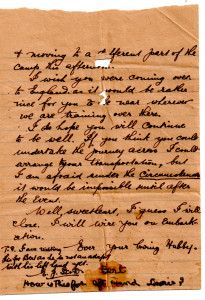 & moving to a different part of the
camp this afternoon.
I wish you were coming over
to England as it would be rather
nice for you to be near wherever
we are training over there.
I do hope you will continue
to be well. If you think you could
undertake the journey across I could
arrange your transportation, but
I am afraid under the Circumstances
it would be impossible until after
the Event.
Well, sweetheart, I guess I will
close. I will wire you on Embark
ation.
Ever your loving Hubby.
Bert
with his left hand
How is this for